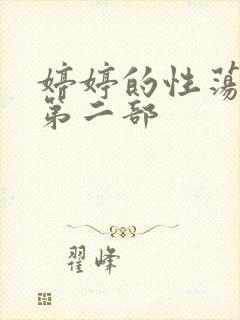 婷婷的性荡
第二部
翟峰